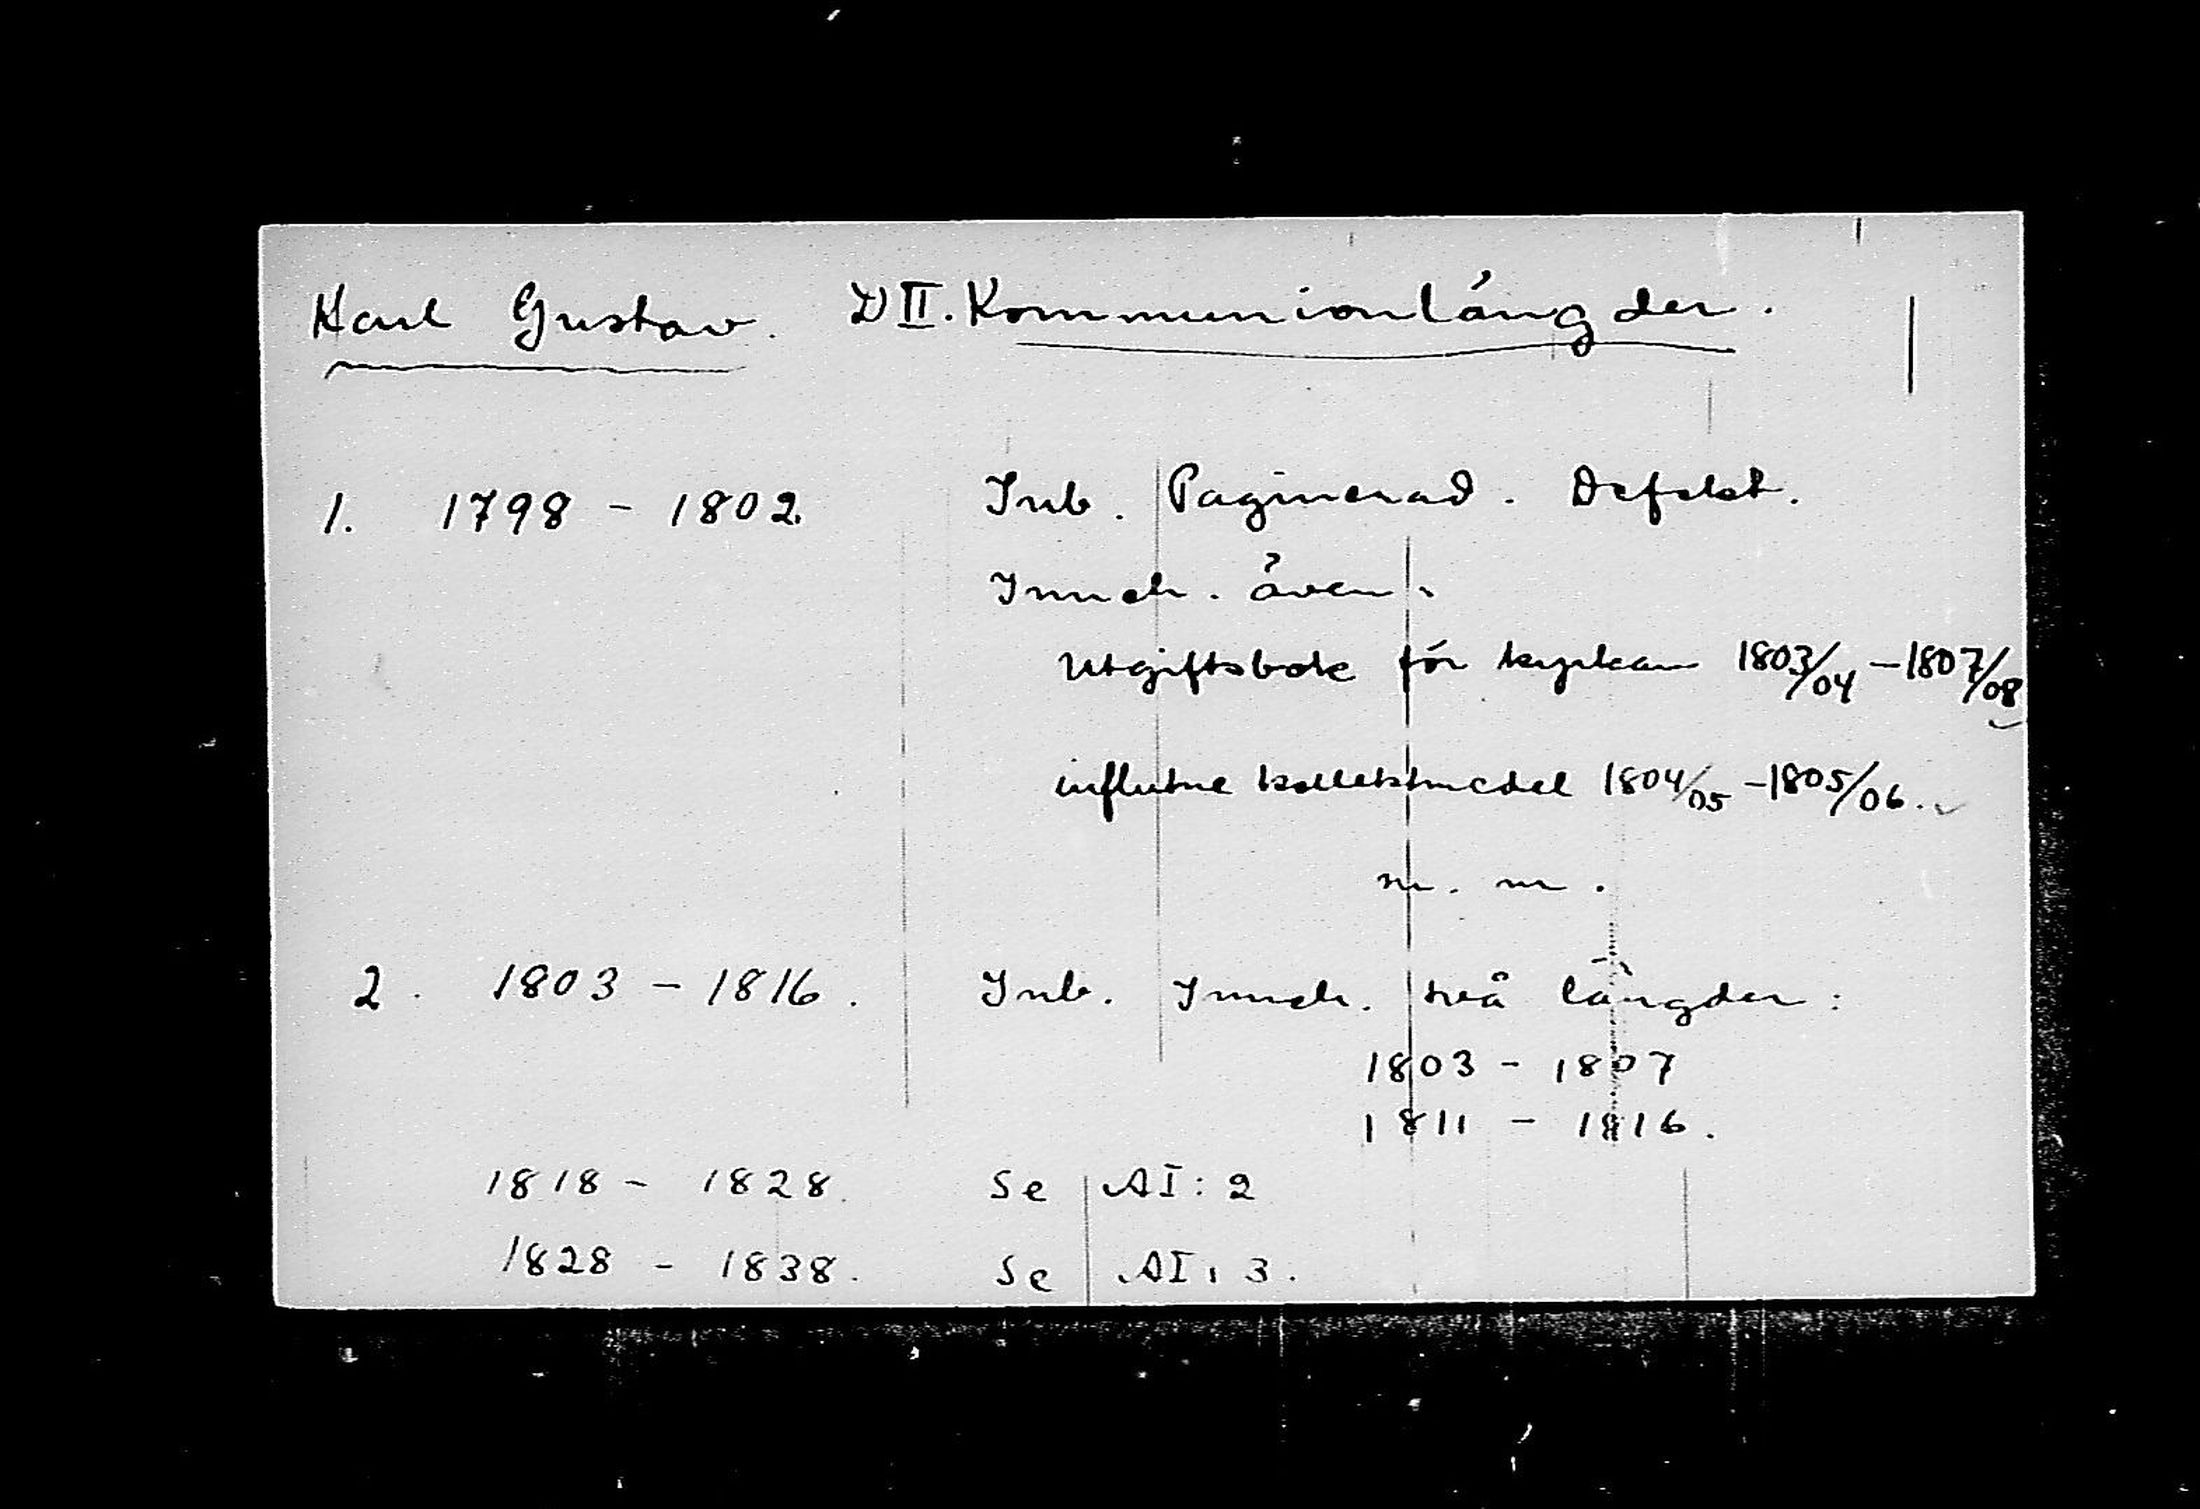 Karl Gustav. D II. Kommunionlängder.
1. 1798 - 1802. Inb. Paginerad. Defekt.
Inneh. även:
Utgiftsbok för kyrkan 1803/04 - 1807/08
influtne kollektmedel 1804/05 - 1805/06.
m. m.
2. 1803 - 1816. Inb. Inneh. två längder:
1803 - 1807
1811 - 1816.
1818 - 1828. Se AI: 2
1828 - 1838. Se AI: 3.